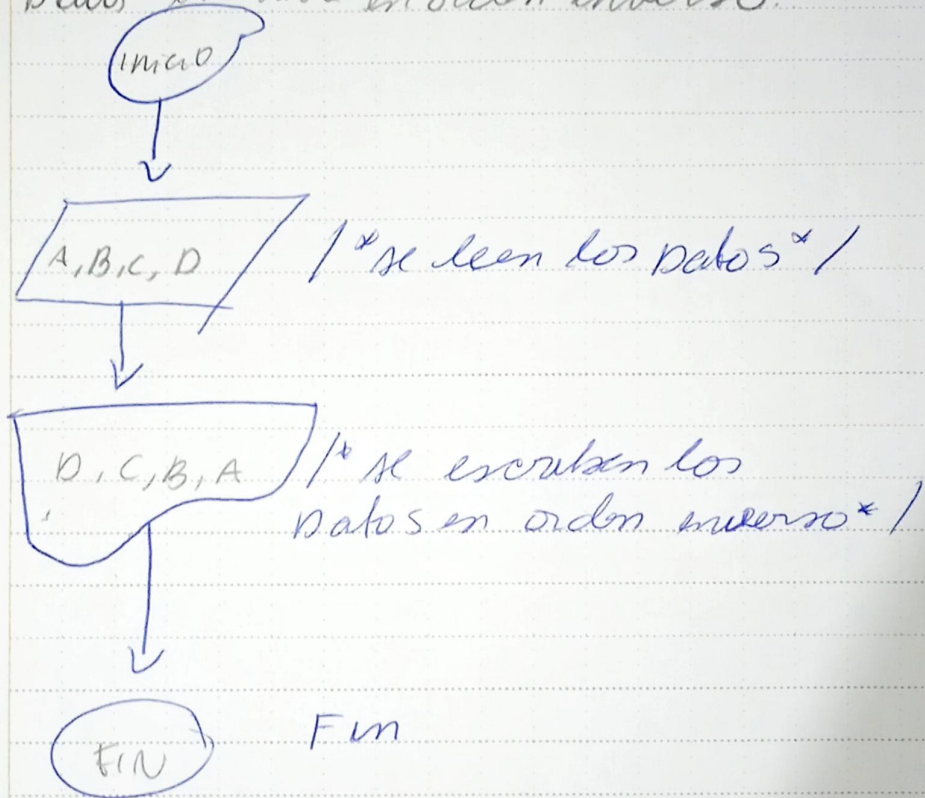 en orden inverso.
Inicio
A, B, C, D /*se leen los Datos*/
D, C, B, A /* se escriben los
Datos en orden inverso*/
FIN Fin